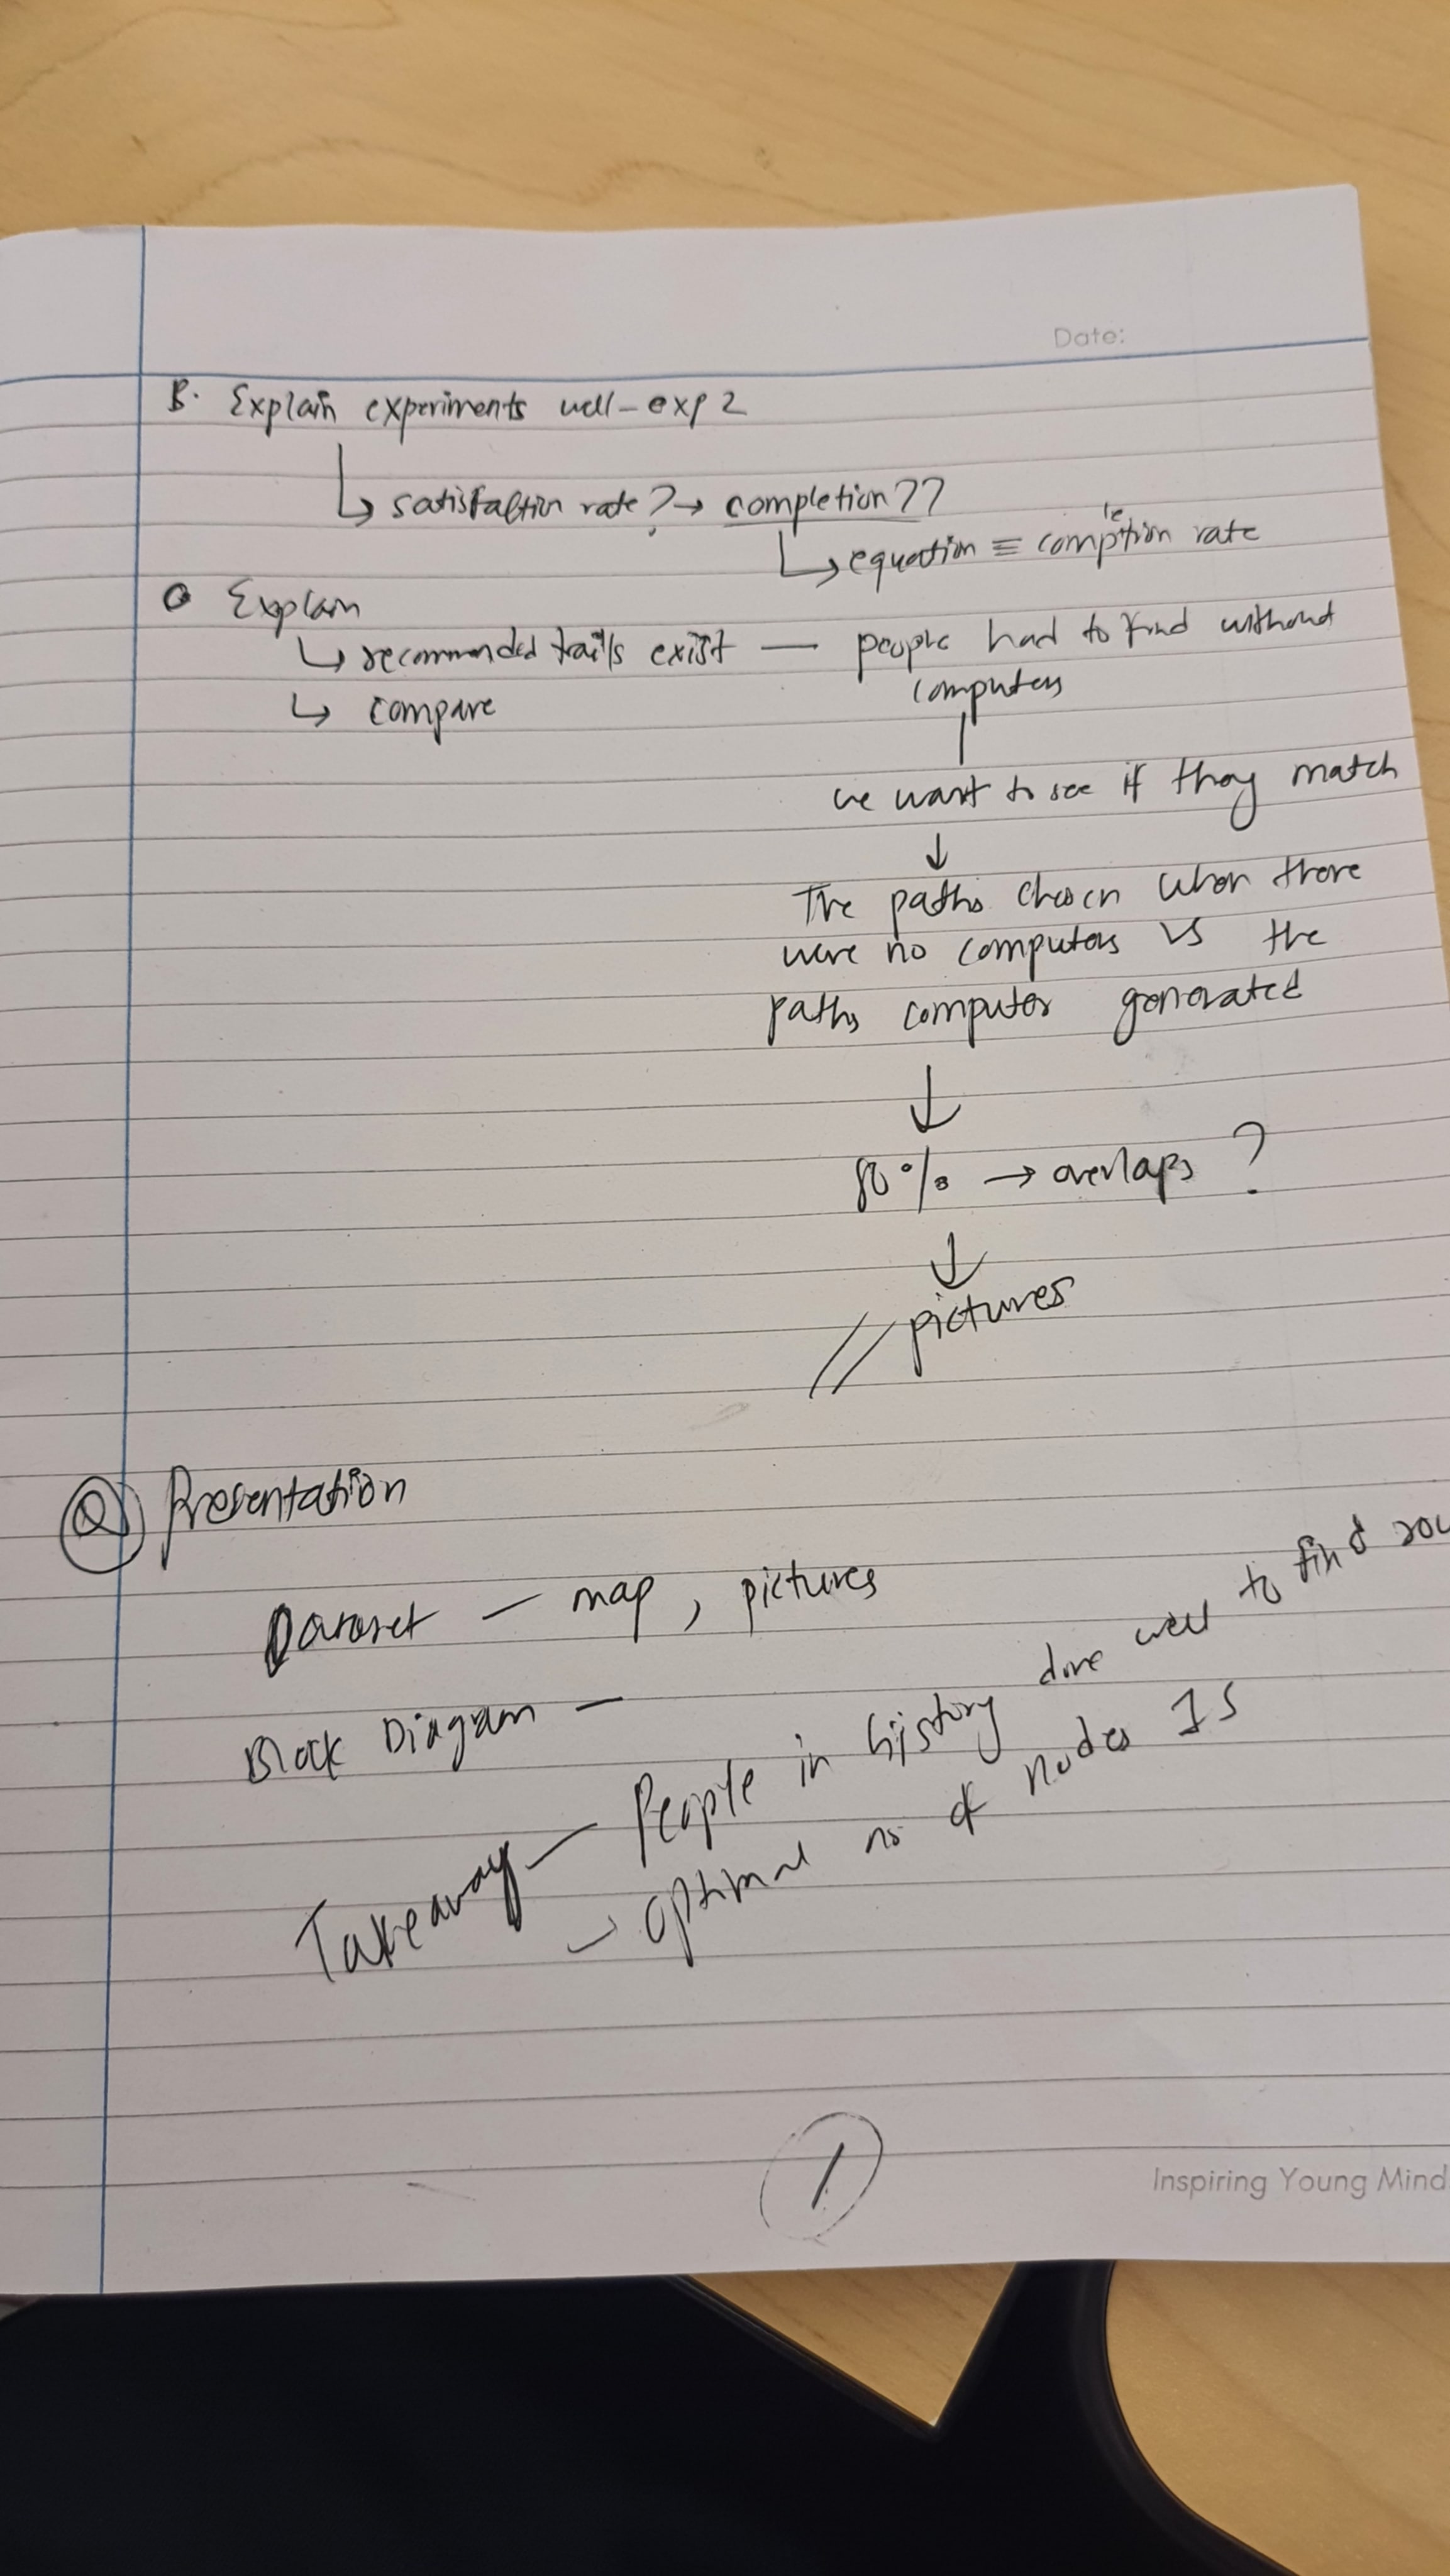 Date:
B. Explain experiments well - exp 2
↳ satisfaction rate? → completion??
↳ equation ≡ completion rate
Explain
↳ recommended trails exist — people had to find without
computers
↳ compare
we want to see if they match
↓
The paths chosen when there
were no computers vs the
paths computer generated
↓
80% → overlaps ?
↓
// pictures
Q Presentation
Dataset — map, pictures
Block Diagram —
Takeaway — People in history done well to find
— optimal no of nodes
1
Inspiring Young Mind